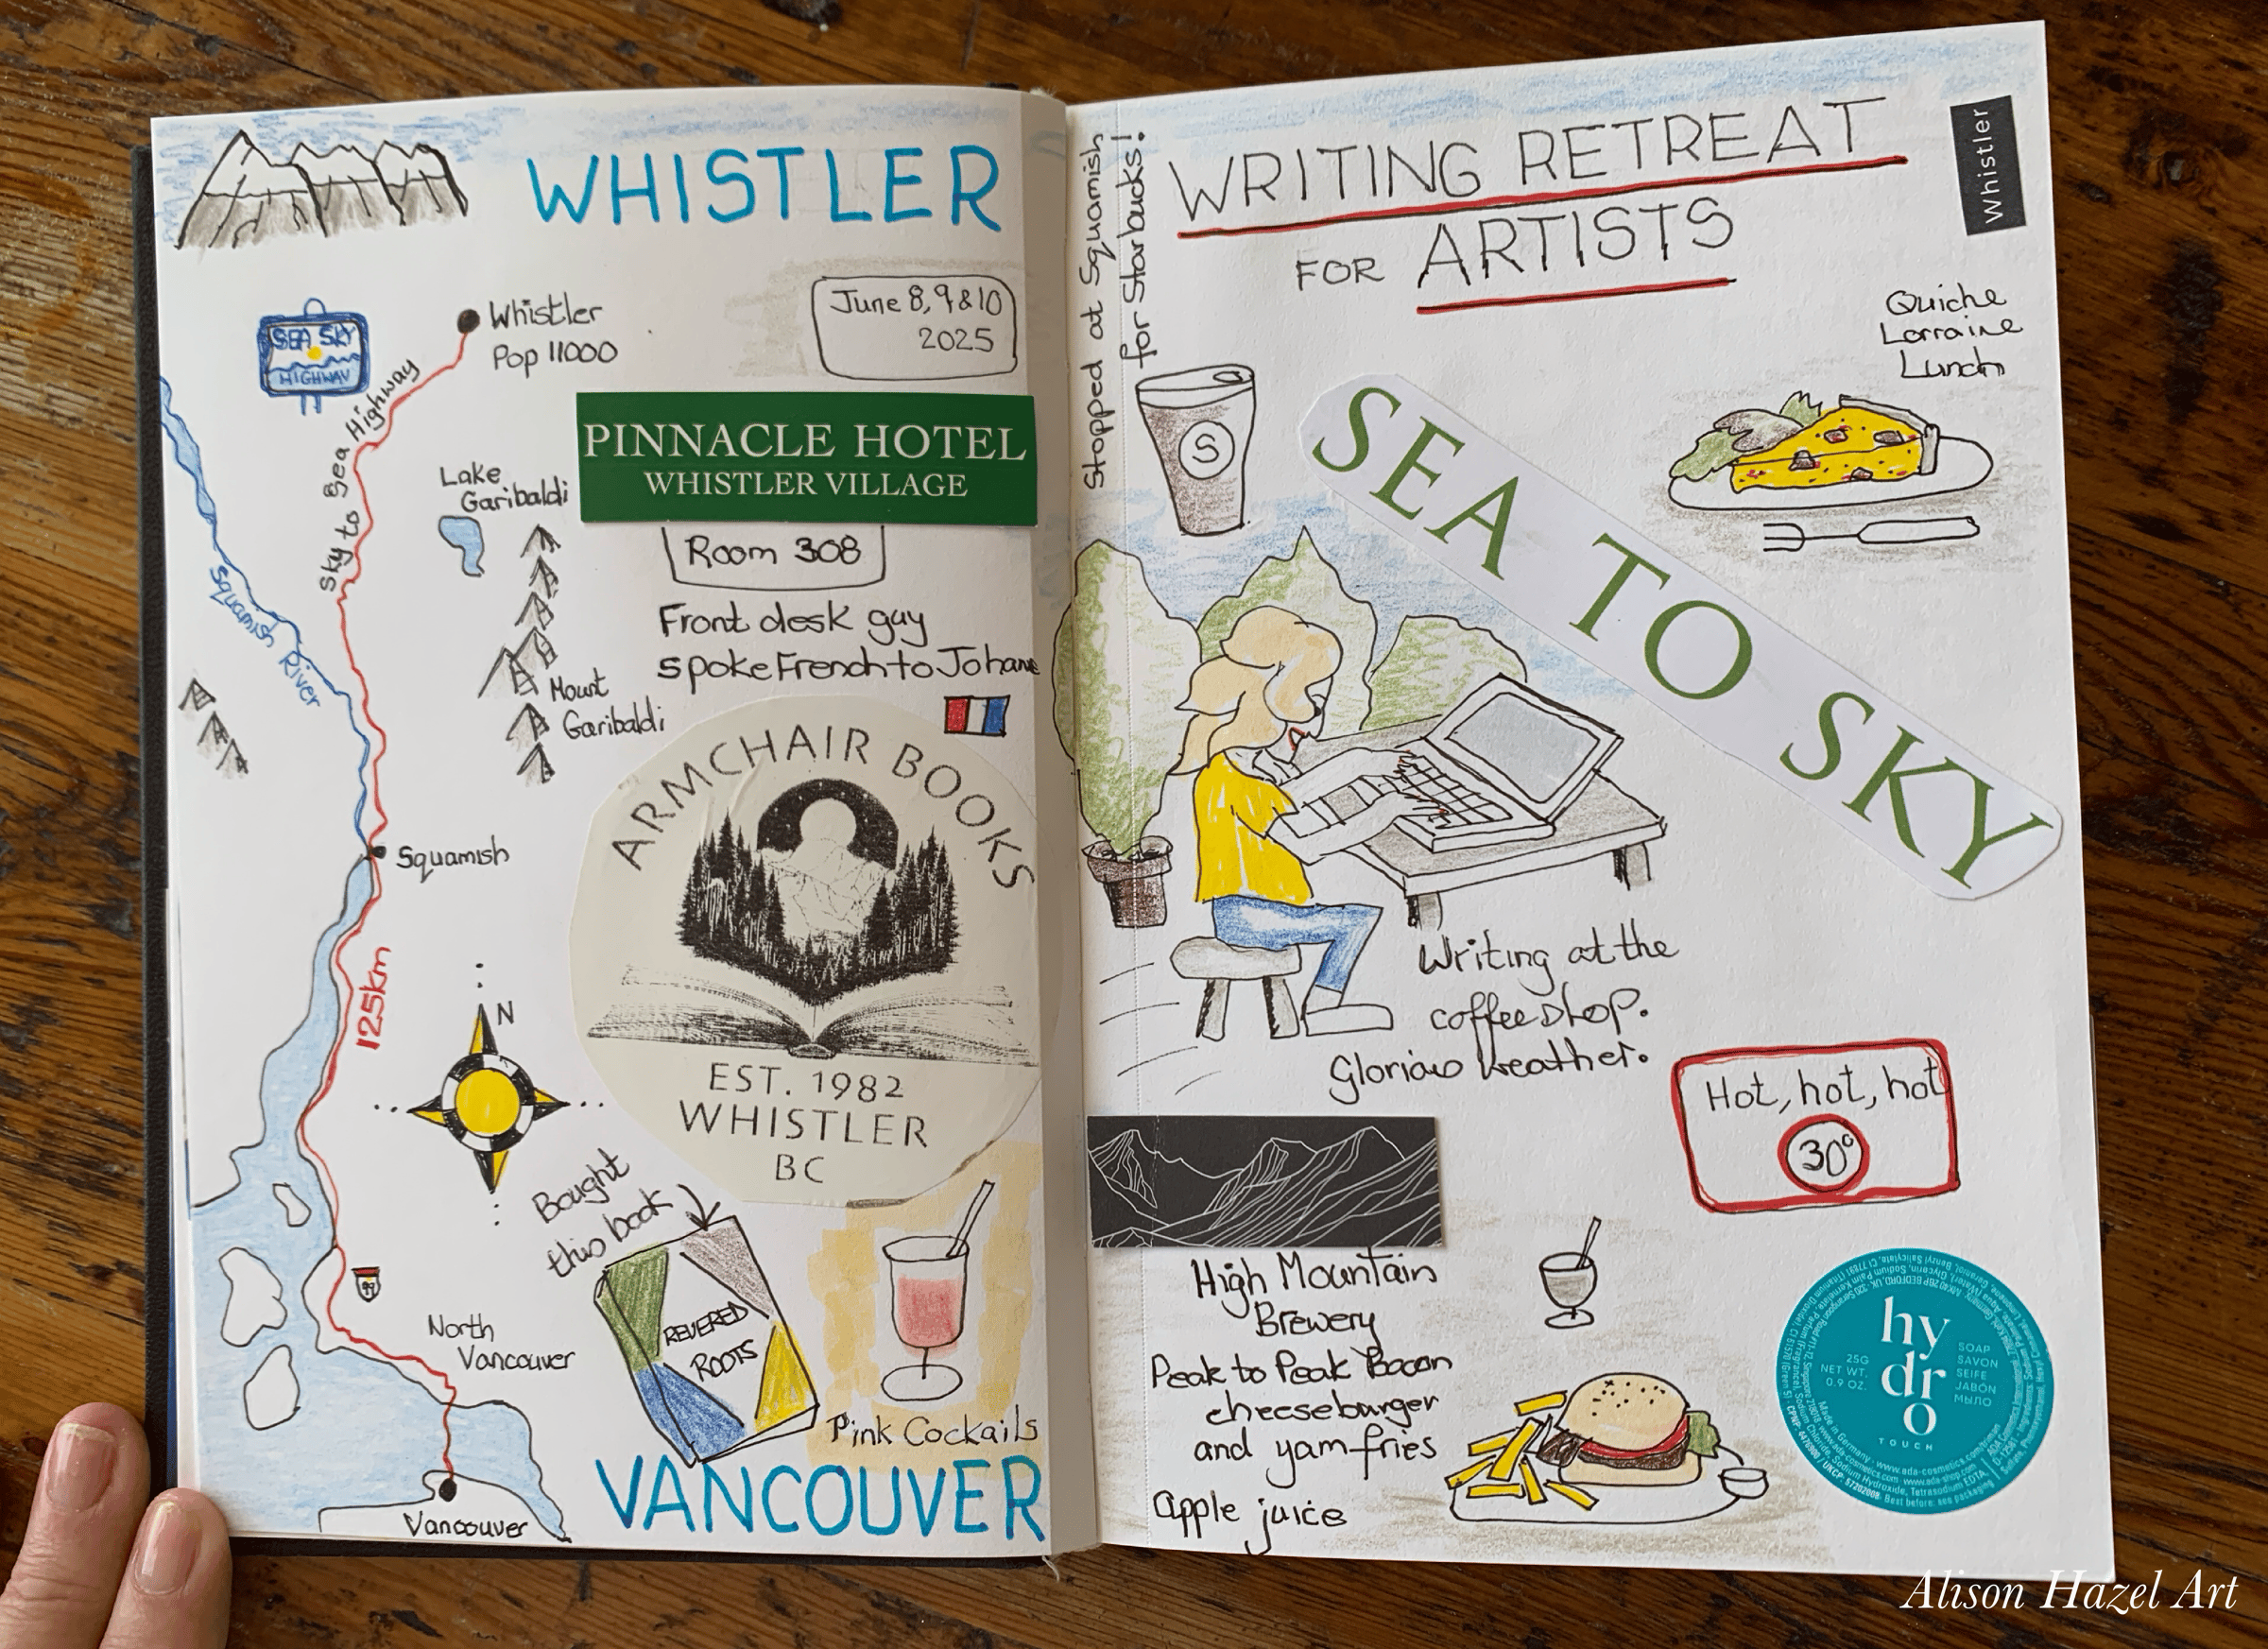 WHISTLER
June 8, 9 & 10
2025
SEA SKY
HIGHWAY
Whistler
Pop 11000
Sky to Sea Highway
PINNACLE HOTEL
WHISTLER VILLAGE
Room 308
Lake
Garibaldi
Squamish River
Front desk guy
spoke French to Johanne
Mount
Garibaldi
ARMCHAIR BOOKS
EST. 1982
WHISTLER
BC
Squamish
125km
N
Bought
this book
REVERED
ROOTS
99
North
Vancouver
Pink Cockails
Vancouver
VANCOUVER
Stopped at Squamish
for Starbucks!
WRITING RETREAT
FOR ARTISTS
Whistler
Quiche
Lorraine
Lunch
S
SEA TO SKY
Writing at the
coffee shop.
Glorious weather.
Hot, hot, hot
30°
High Mountain
Brewery
Peak to Peak Bacon
cheeseburger
and yam fries
apple juice
hy
dr
o
TOUCH
25G
NET WT.
0.9 OZ.
SOAP
SAVON
SEIFE
JABÓN
МЫЛО
Alison Hazel Art